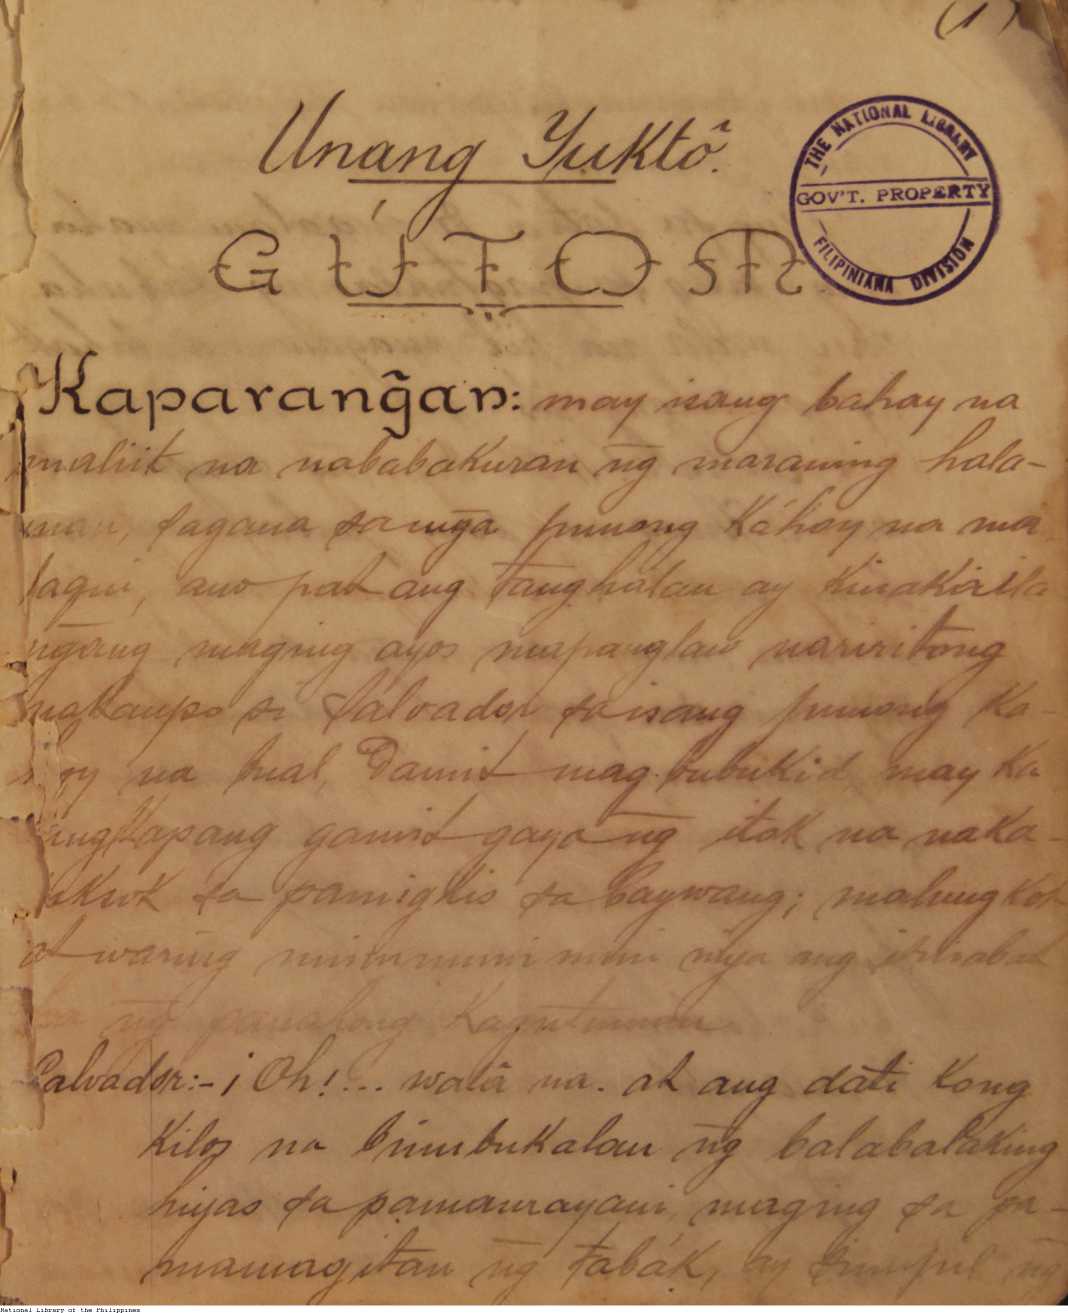 (1)
Unang Yuktô.
GÚTOM
THE NATIONAL LIBRARY
GOV'T. PROPERTY
FILIPINIANA DIVISION
Kaparang̃an: may isang bahay na
maliit na nababakuran n̄g maraming hala-
man, sagana sa mg̃a punong Káhoy na ma
ang tanghálan ay
maging ayos mapanglaw naririto'ng
si Salvador sa isang punong Ka-
na Damit mag-bubukid, may Ka
gamit gaya n̄g itak na naka-
sa pamigkis sa baywang; malungkot
at waring niya ang
n̄g panahong Kagutuman
Salvador:- ¡Oh!... walâ na. at ang dáti Kong
Kilos na binubukalan n̄g balabalaking
hiyas sa pamamayani, maging sa pa-
mamagitan n̄g tabák, ay n̄g
National Library of the Philippines